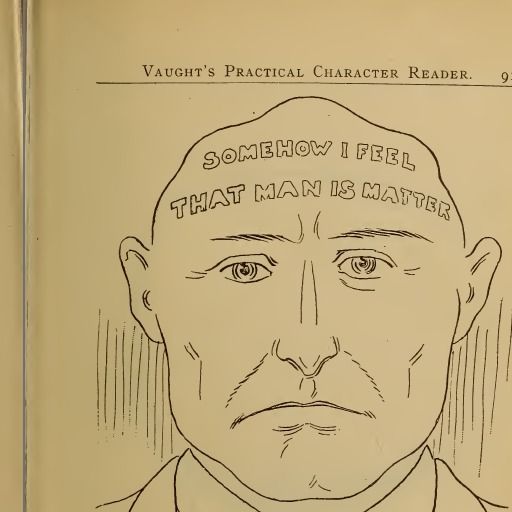 VAUGHT'S PRACTICAL CHARACTER READER.
SOMEHOW I FEEL
THAT MAN IS MATTER